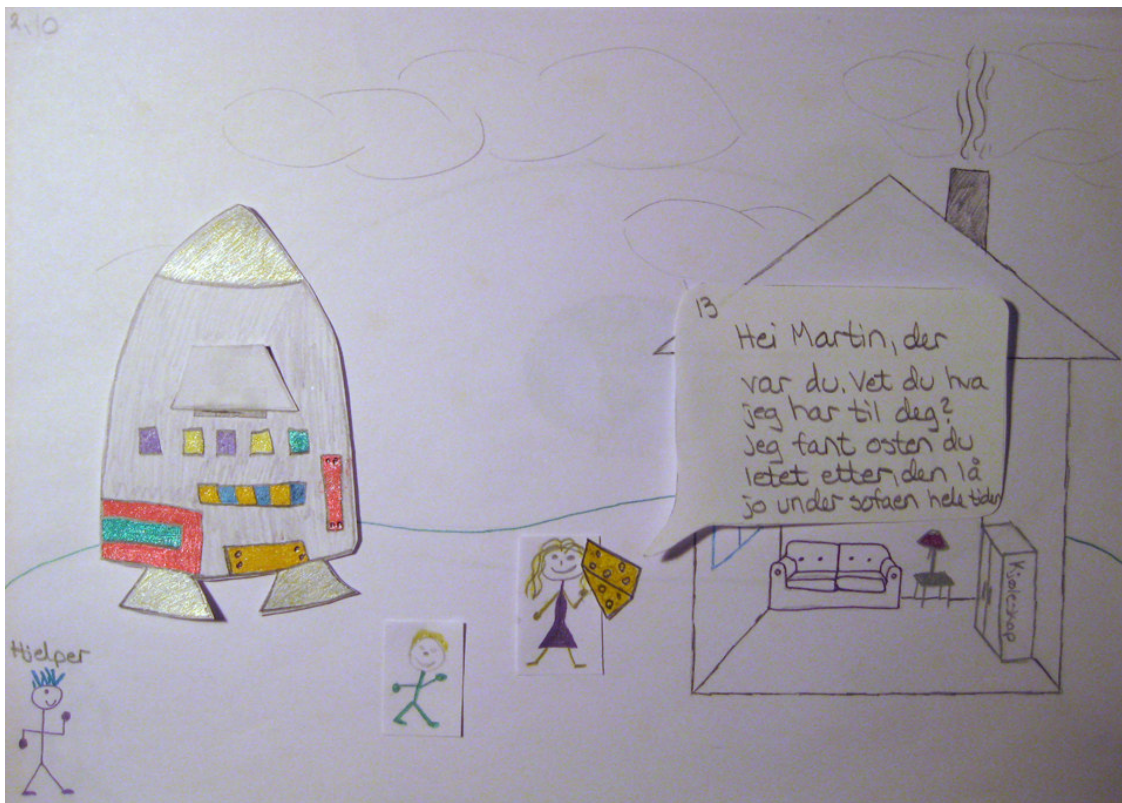 13
Hei Martin, der
var du. Vet du hva
jeg har til deg?
Jeg fant osten du
letet etter, den lå
jo under sofaen hele tiden
Kjøleskap
Hjelper